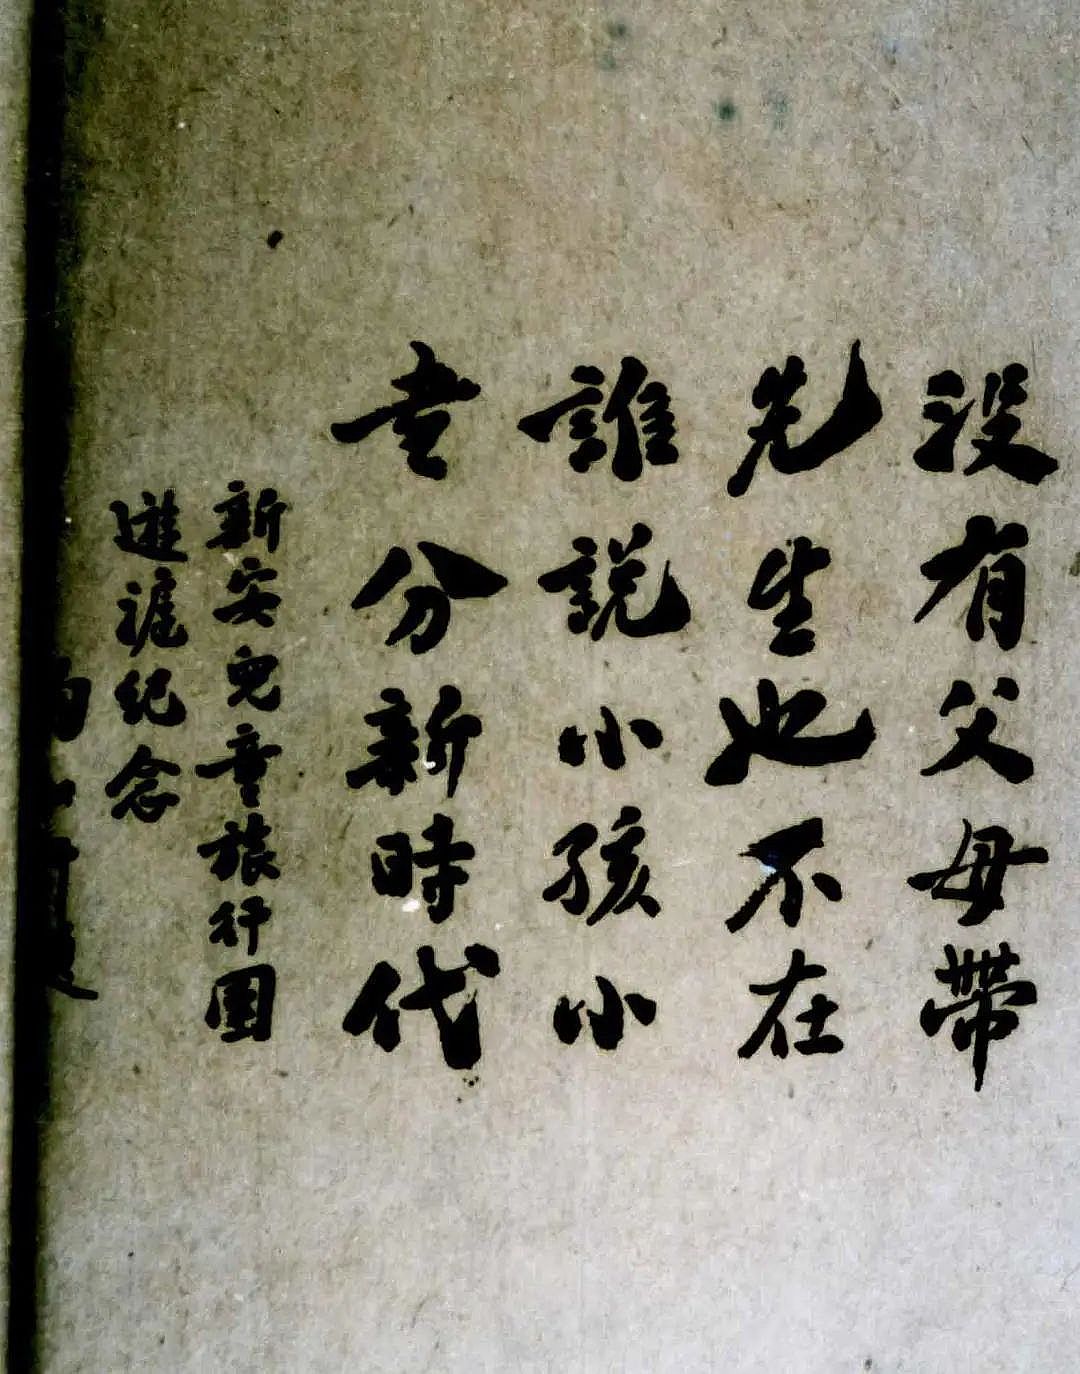 没有父母帶
先生也不在
誰說小孩小
畫分新時代
新安兒童旅行團
遊滬紀念